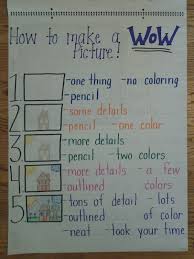 How to make a WOW
Picture!
1 -one thing -no coloring
-pencil
2 -some details
-pencil -one color
3 -more details
-pencil -two colors
4 -more details -a few
-outlined colors
5 -tons of detail -lots
-outlined of color
-neat -took your time